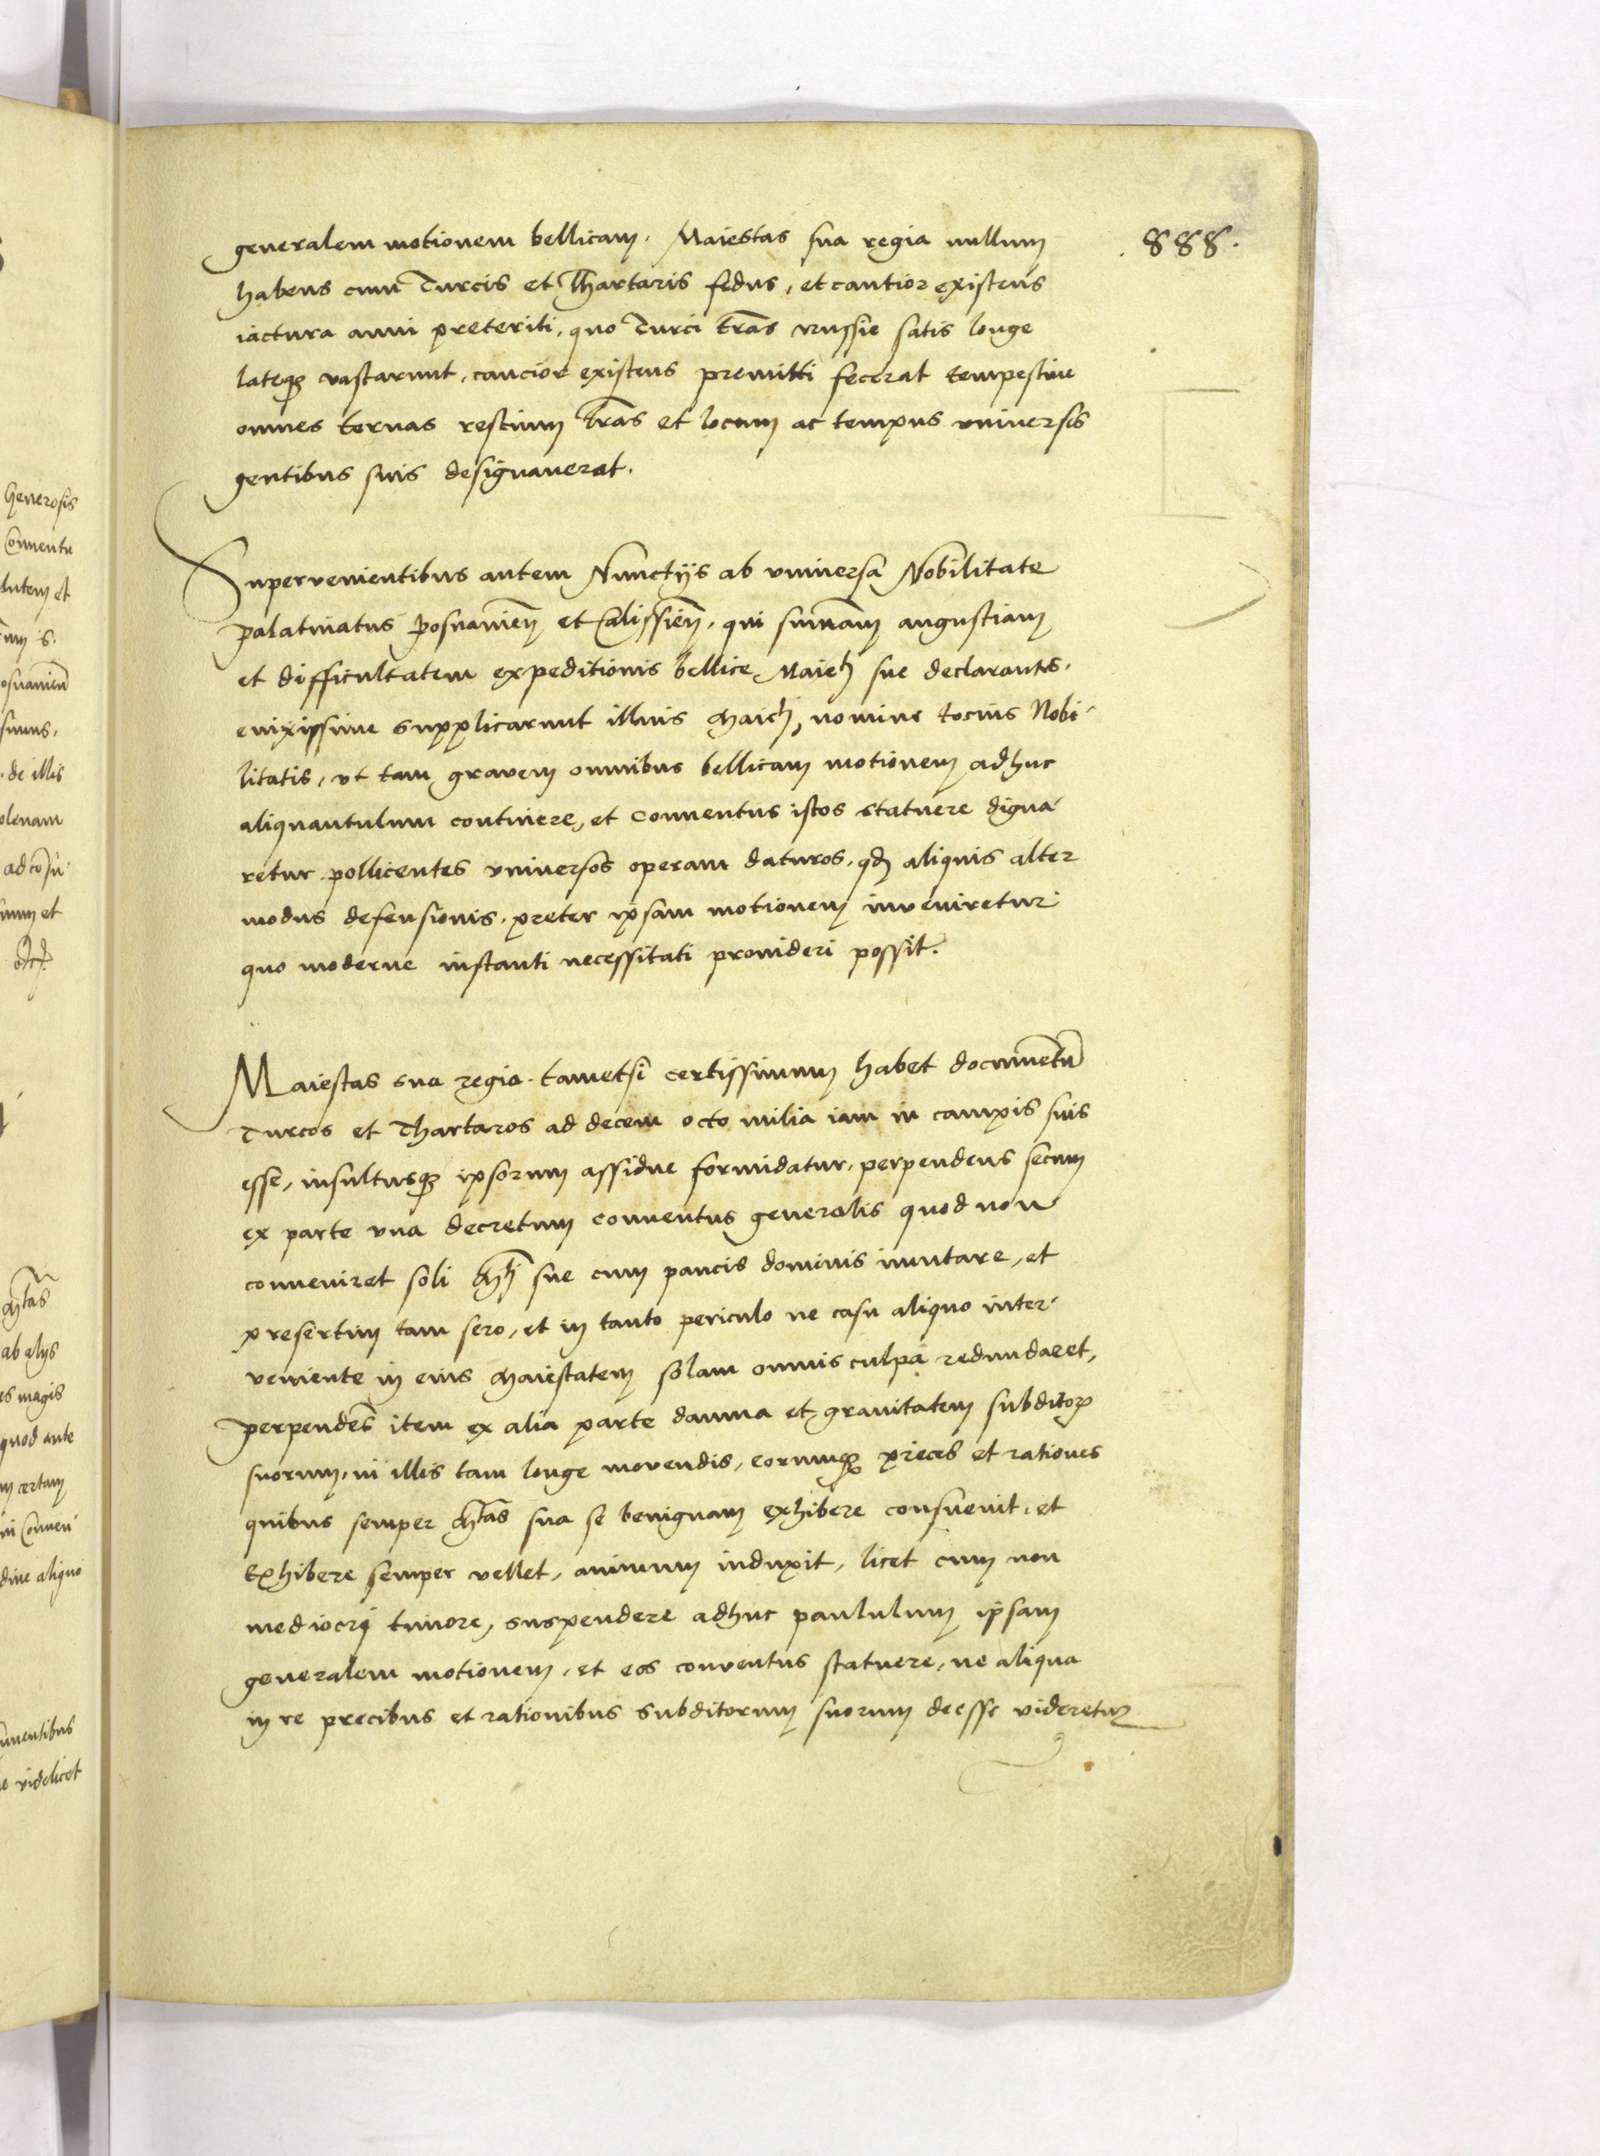 .888.
generalem motionem bellicam. Maiestas sua regia nullum
habens cum Turcis et Thartaris fedus, et cautior existens
iactura anni preteriti, quo Turci t̃ras Russie satis longe
lateq; vastarunt, caucior existens premitti fecerat tempestiue
omnes ternas restium l̃ras et locum ac tempus vniuersis
gentibus suis designauerat.
Superuenientibus autem Nunctijs ab vniuersa Nobilitate
palatinatus Posnanieñ et Calissieñ. qui sum̃am angustiam
et difficultatem expeditionis bellice Maieti sue declarantes.
enixissime supplicarunt illius Maieti, nomine tocius Nobi-
litatis, vt tam gravem omnibus bellicam motionem adhuc
aliquantulum continere, et Conuentus istos statuere digna-
retur. pollicentes vniuersos operam daturos. qd aliquis alter
modus defensionis. preter ipsam motionem inveniretur
quo moderne instanti necessitati prouideri possit.
Maiestas sua regia. tametsi certissimum habet documentũ
Turcos et Thartaros ad decem octo milia iam in campis suis
esse, insultusq; ipsorum assidue formidatur. perpendens secum
ex parte vna decretum conuentus generalis quod non
conveniret soli Mti sue cum paucis dominis inmutare, et
presertim tam sero, et in tanto periculo ne casu aliquo inter-
veniente in eius Maiestatem solam omnis culpa redundaret,
perpendẽs item ex alia parte damna et grauitatem subditoꝝ
suorum, in illis tam longe movendis, eorumq; preces et rationes
quibus semper Mtas sua se benignam exhibere consueuit, et
Exhibere semper vellet, animum induxit, licet cum non
mediocri timore, suspendere adhuc paululum ipsam
generalem motionem, et eos conventus statuere, ne aliqua
in re precibus et rationibus subditorum suorum deesse videretur
Generosis
Conuentu
de illis
ab alijs
es magis
quod ante
certam
dine aliquo
videlicet